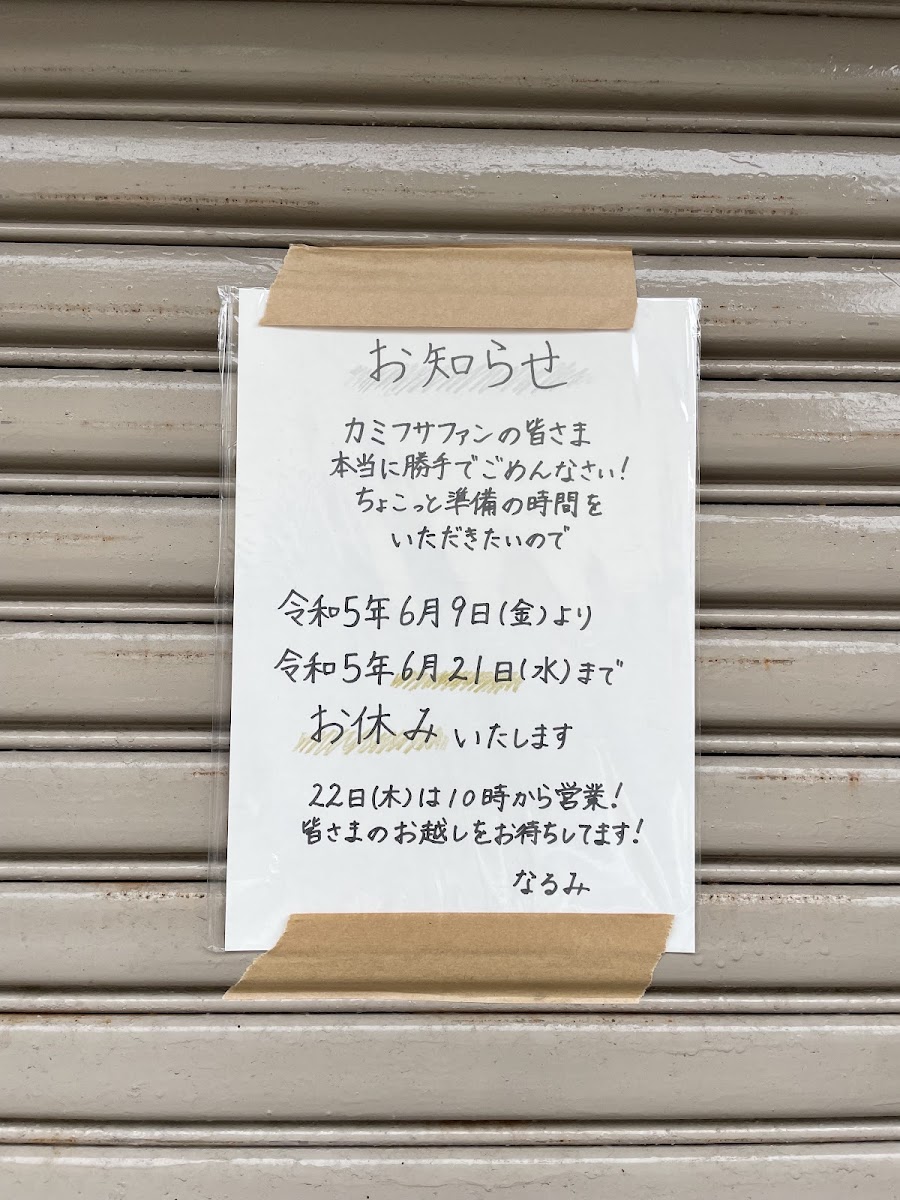 お知らせ
カミフサファンの皆さま
本当に勝手でごめんなさい!
ちょこっと準備の時間を
いただきたいので
令和5年6月9日(金)より
令和5年6月21日(水)まで
お休みいたします
22日(木)は10時から営業!
皆さまのお越しをお待ちしてます!
なるみ